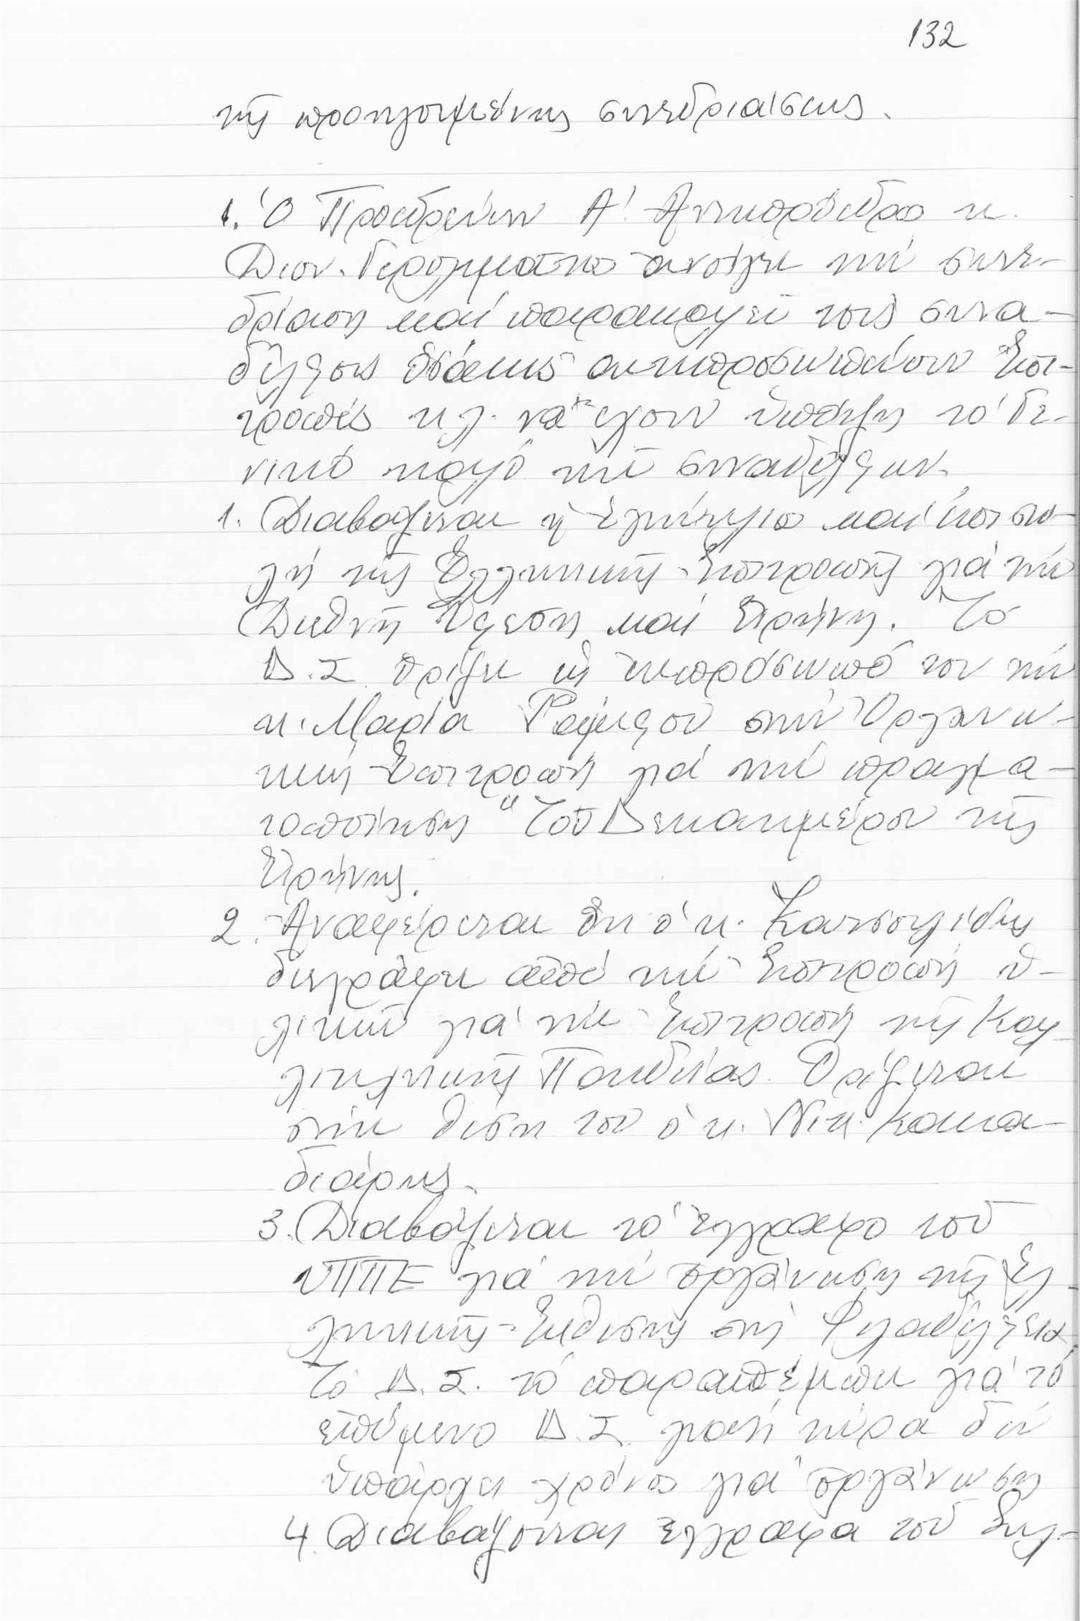 132
τῆς προηγουμένης συνεδριάσεως.
1. Ὁ Προεδρεύων Α! Ἀντιπρόεδρο κ.
Διον. Γερολυματο ἀνοίγει τήν συνε-
δρίαση καί παρακαλεῖ τούς συνα-
δέλφους ὁσάκις ἀντιπροσωπεύουν Ἐπι-
τροπές κ.λ. νά ἔχουν ὑπόψη τό Γε-
νικό καλό τῶν συναδέλφων.
1. Διαβάζεται ἡ ἐγκύκλιο καί ἐπιστο-
λή τῆς Ἑλληνικῆς Ἐπιτροπῆς γιά τήν
Διεθνῆ Ὕφεση καί Εἰρήνη. Τό
Δ.Σ. ὁρίζει ὡς ἐκπρόσωπό του τήν
κ. Μαρία στήν Ὀργανω-
τική Ἐπιτροπή γιά τήν πραγμα-
τοποίηση "Τοῦ Δεκαημέρου τῆς
Εἰρήνης.
2. Ἀναφέρεται ὅτι ὁ κ. Κατσουλίδης
διεγράφη ἀπό τήν Ἐπιτροπή ὑ-
λικῶν γιά τήν Ἐπιτροπή τῆς Καλ-
λιτεχνικῆς Παιδείας. Ὁρίζεται
στήν θέση του ὁ κ. Νικ. Κακα-
διάρης.
3. Διαβάζεται τό ἔγγραφο τοῦ
ΥΠΠΕ γιά τήν ὀργάνωση τῆς Ἑλ-
ληνικῆς Ἐκθεσης στή Φιλαδέλφεια.
Τό Δ.Σ. τό παραπέμπει γιά τό
ἑπόμενο Δ.Σ. γιατί τώρα δέν
ὑπάρχει χρόνος γιά ὀργάνωση
4. Διαβάζονται ἔγγραφα τοῦ Συλ-